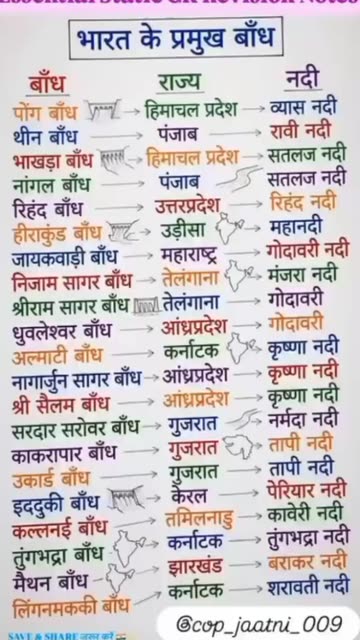 Essential Static GK Revision Notes
भारत के प्रमुख बाँध
बाँध राज्य नदी
पोंग बाँध → हिमाचल प्रदेश → व्यास नदी
थीन बाँध → पंजाब → रावी नदी
भाखड़ा बाँध → हिमाचल प्रदेश → सतलज नदी
नांगल बाँध → पंजाब सतलज नदी
रिहंद बाँध → उत्तरप्रदेश → रिहंद नदी
हीराकुंड बाँध → उड़ीसा → महानदी
जायकवाड़ी बाँध → महाराष्ट्र → गोदावरी नदी
निजाम सागर बाँध → तेलंगाना → मंजरा नदी
श्रीराम सागर बाँध तेलंगाना → गोदावरी
धुवलेश्वर बाँध → आंध्रप्रदेश → गोदावरी
अल्माटी बाँध → कर्नाटक → कृष्णा नदी
नागार्जुन सागर बाँध → आंध्रप्रदेश → कृष्णा नदी
श्री सैलम बाँध → आंध्रप्रदेश → कृष्णा नदी
सरदार सरोवर बाँध → गुजरात → नर्मदा नदी
काकरापार बाँध → गुजरात → तापी नदी
उकाई बाँध → गुजरात → तापी नदी
इददुकी बाँध → केरल → पेरियार नदी
कल्लनई बाँध → तमिलनाडु → कावेरी नदी
तुंगभद्रा बाँध → कर्नाटक → तुंगभद्रा नदी
मैथन बाँध → झारखंड → बराकर नदी
लिंगनमककी बाँध → कर्नाटक → शरावती नदी
SAVE & SHARE जरूर करें
@cop_jaatni_009